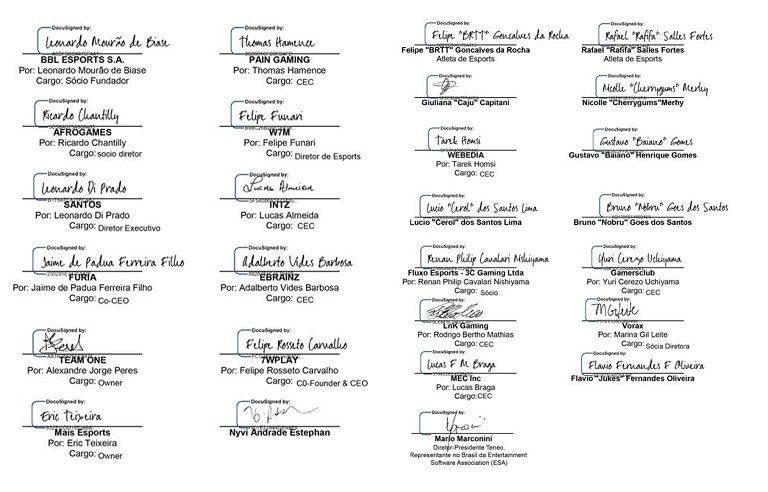 DocuSigned by:
Leonardo Mourão de Biase
BBL ESPORTS S.A.
Por: Leonardo Mourão de Biase
Cargo: Sócio Fundador
DocuSigned by:
Thomas Hamence
PAIN GAMING
Por: Thomas Hamence
Cargo: CEC
DocuSigned by:
Ricardo Chantilly
AFROGAMES
Por: Ricardo Chantilly
Cargo: socio diretor
DocuSigned by:
Felipe Funari
W7M
Por: Felipe Funari
Cargo: Diretor de Esports
DocuSigned by:
Leonardo Di Prado
SANTOS
Por: Leonardo Di Prado
Cargo: Diretor Executivo
DocuSigned by:
Lucas Almeida
INTZ
Por: Lucas Almeida
Cargo: CEC
DocuSigned by:
Jaime de Padua Ferreira Filho
FURIA
Por: Jaime de Padua Ferreira Filho
Cargo: Co-CEO
DocuSigned by:
Adalberto Vides Barbosa
EBRAINZ
Por: Adalberto Vides Barbosa
Cargo: CEC
DocuSigned by:
TEAM ONE
Por: Alexandre Jorge Peres
Cargo: Owner
DocuSigned by:
Felipe Rosseto Carvalho
7WPLAY
Por: Felipe Rosseto Carvalho
Cargo: C0-Founder & CEO
DocuSigned by:
Eric Teixeira
Mais Esports
Por: Eric Teixeira
Cargo: Owner
DocuSigned by:
Nyvi Andrade Estephan
DocuSigned by:
Felipe "BRTT" Goncalves da Rocha
Felipe "BRTT" Goncalves da Rocha
Atleta de Esports
DocuSigned by:
Rafael "Rafifa" Salles Fortes
Rafael "Rafifa" Salles Fortes
Atleta de Esports
DocuSigned by:
Giuliana "Caju" Capitani
DocuSigned by:
Nicolle "Cherrygums" Merhy
Nicolle "Cherrygums"Merhy
DocuSigned by:
Tarek Homsi
WEBEDIA
Por: Tarek Homsi
Cargo: CEC
DocuSigned by:
Gustavo "Baiano" Gomes
Gustavo "Baiano" Henrique Gomes
DocuSigned by:
Lucio "Cerol" dos Santos Lima
Lucio "Cerol" dos Santos Lima
DocuSigned by:
Bruno "Nobru" Goes dos Santos
Bruno "Nobru" Goes dos Santos
DocuSigned by:
Renan Philip Cavalari Nishiyama
Fluxo Esports - 3C Gaming Ltda
Por: Renan Philip Cavalari Nishiyama
Cargo: Sócio
DocuSigned by:
Yuri Cerezo Uchiyama
Gamersclub
Por: Yuri Cerezo Uchiyama
Cargo: CEC
DocuSigned by:
LnK Gaming
Por: Rodrigo Bertho Mathias
Cargo: CEC
DocuSigned by:
MGLeite
Vorax
Por: Marina Gil Leite
Cargo: Sócia Diretora
DocuSigned by:
Lucas F M Braga
MEC Inc
Por: Lucas Braga
Cargo:CEC
DocuSigned by:
Flavio Fernandes F Oliveira
Flavio "Jukes" Fernandes Oliveira
DocuSigned by:
Mario Marconini
Diretor-Presidente Teneo,
Representante no Brasil da Entertainment
Software Association (ESA)